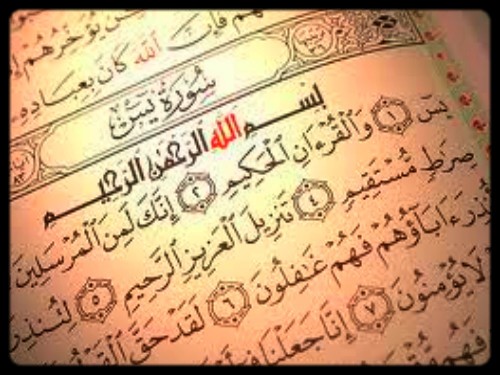 يُؤَخِّرُهُمْ
فَإِنَّ اللَّهَ كَانَ بِعِبَادِهِ
سُورَةُ يسٓ
بِسْمِ اللَّهِ الرَّحْمَٰنِ الرَّحِيمِ
يسٓ ١ وَالْقُرْءَانِ الْحَكِيمِ ٢ إِنَّكَ لَمِنَ الْمُرْسَلِينَ
صِرَٰطٍ مُّسْتَقِيمٍ ٤ تَنزِيلَ الْعَزِيزِ الرَّحِيمِ ٥ لِتُنذِرَ
أُنذِرَ ءَابَآؤُهُمْ فَهُمْ غَٰفِلُونَ ٦ لَقَدْ حَقَّ الْقَوْلُ
لَا يُؤْمِنُونَ ٧ إِنَّا جَعَلْنَا فِىٓ
فَهُم